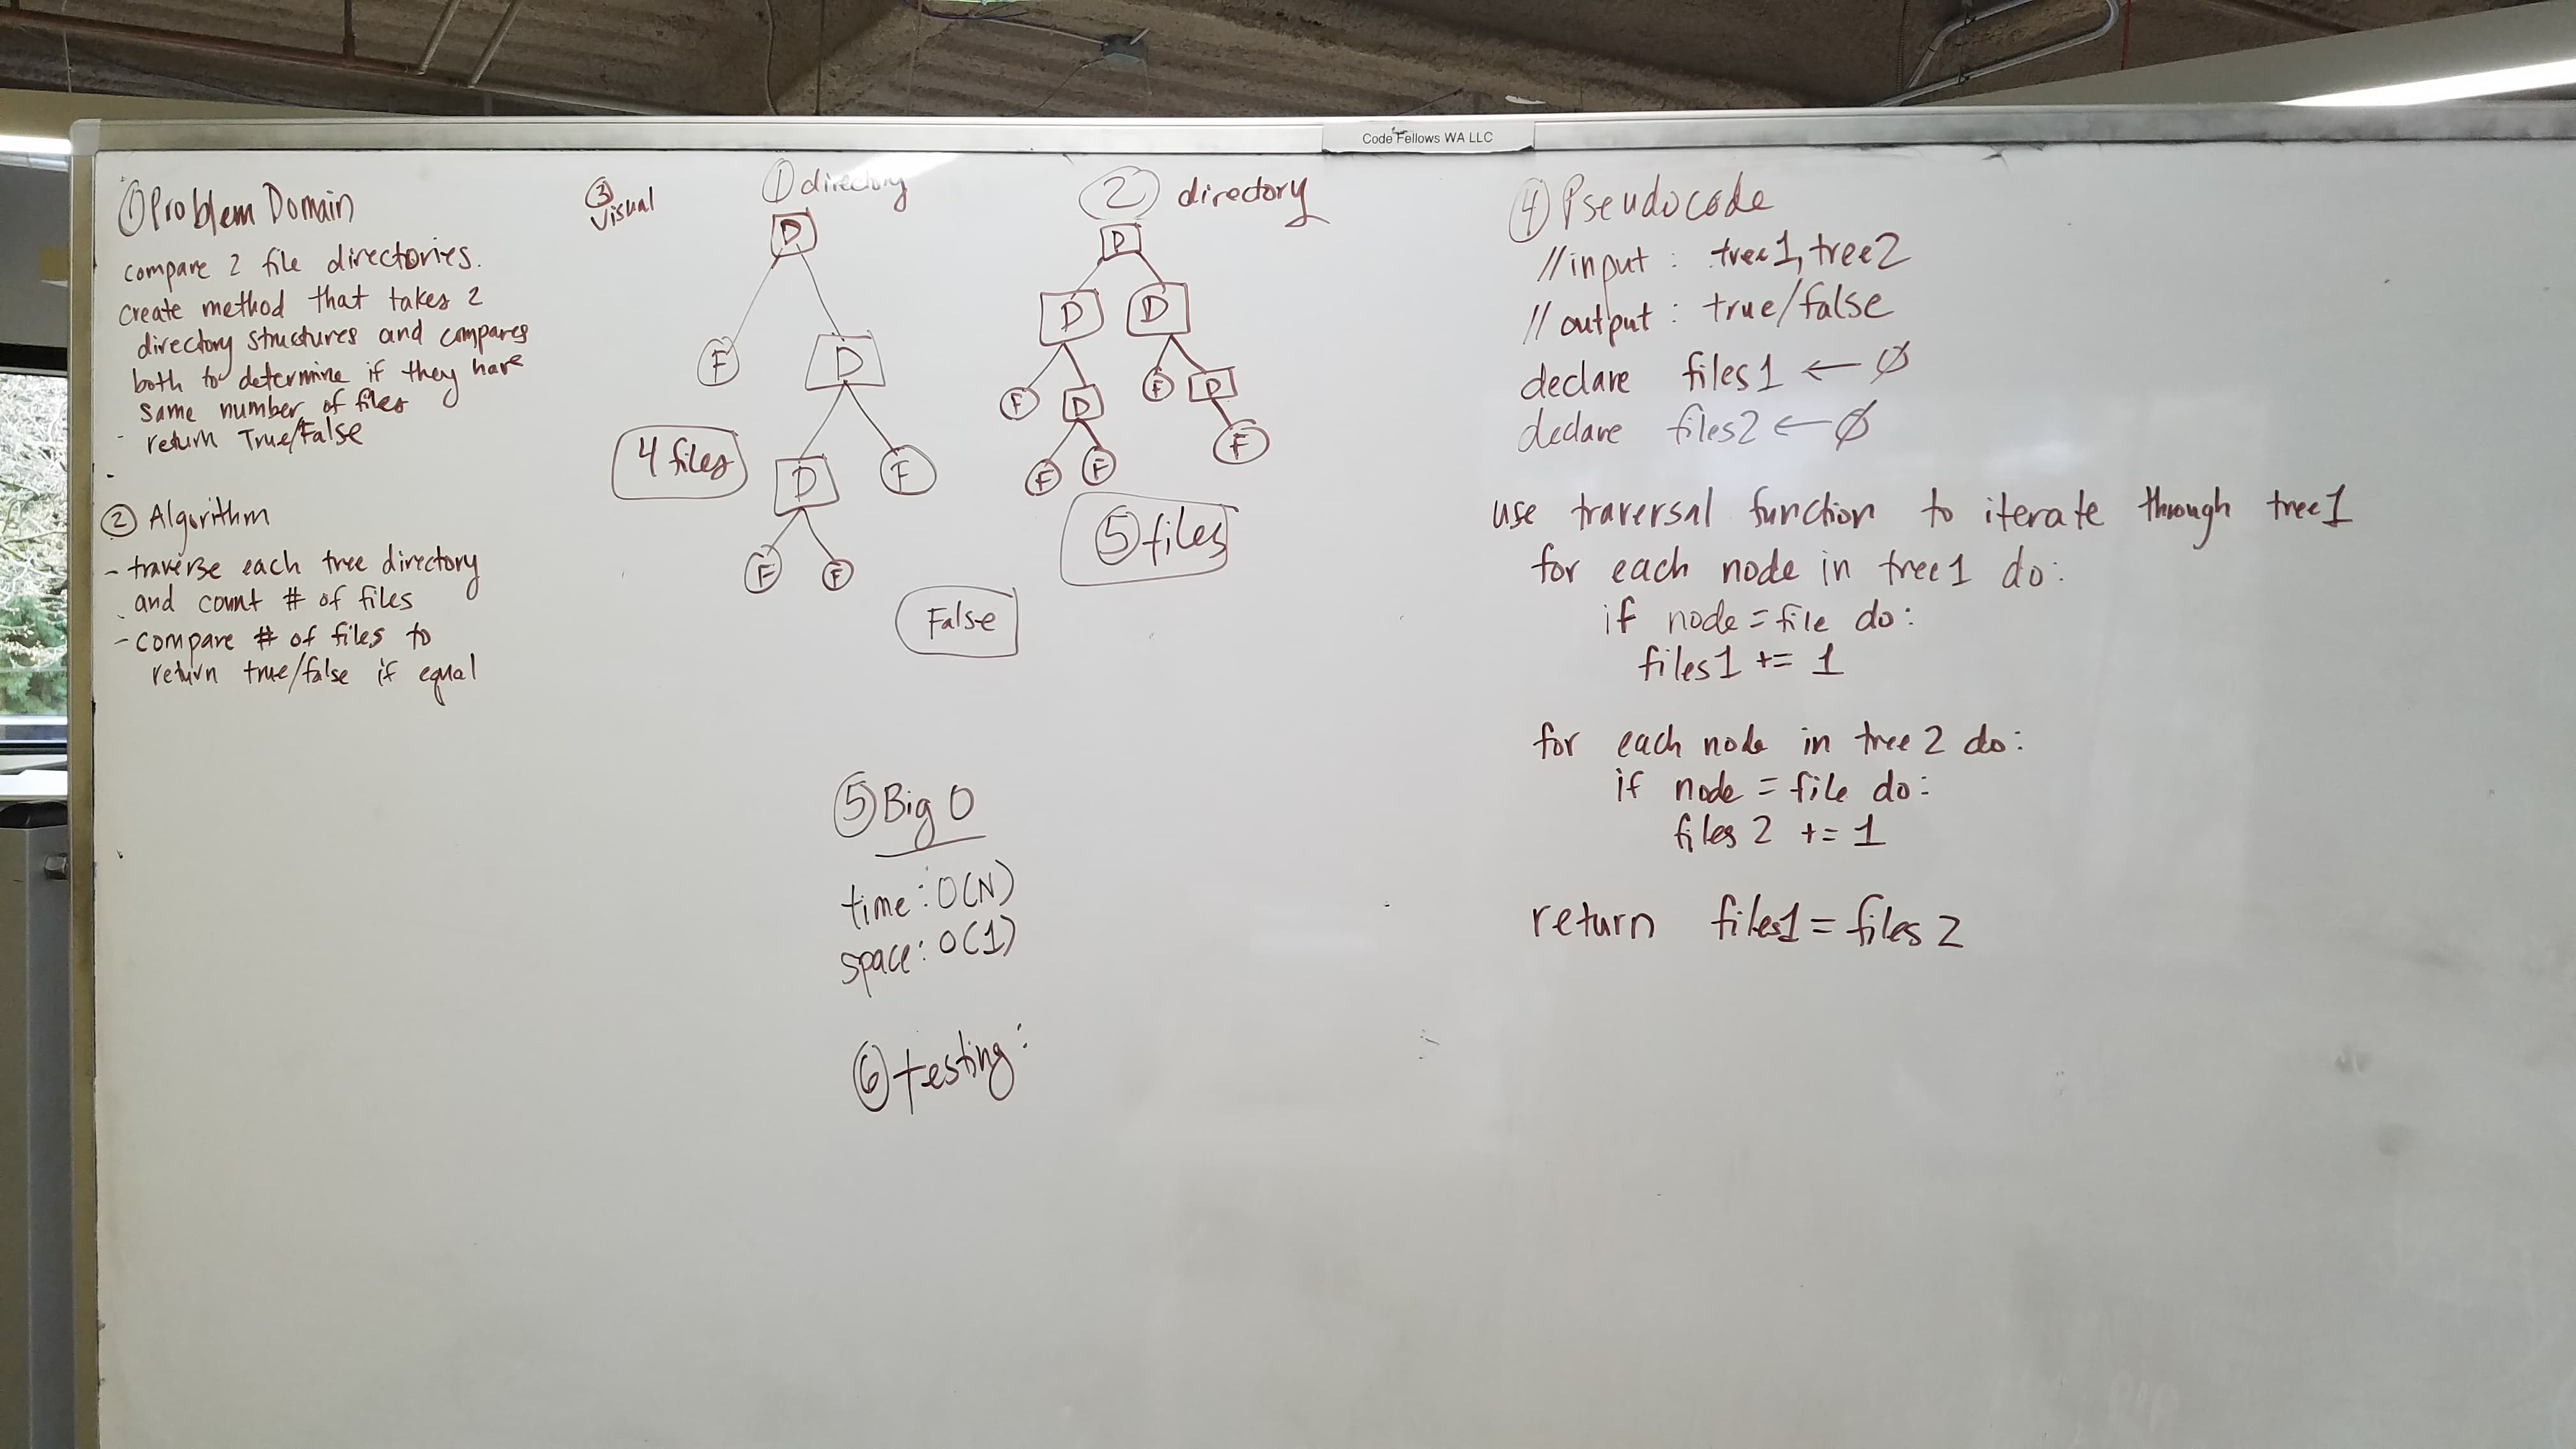 Code Fellows WA LLC
① Problem Domain
compare 2 file directories.
create method that takes 2
directory structures and compares
both to determine if they have
same number of files
- return True/False
② Algorithm
- traverse each tree directory
and count # of files
- compare # of files to
return true/false if equal
③
Visual
① directory
D
F
D
D
F
F
F
4 files
② directory
D
D
D
F
D
F
D
F
F
F
⑤ files
False
⑤ Big O
time: O(N)
space: O(1)
⑥ testing:
④ Pseudocode
//input : tree1, tree2
//output : true/false
declare files1 ← ∅
declare files2 ← ∅
use traversal function to iterate through tree1
for each node in tree1 do:
if node = file do:
files1 += 1
for each node in tree 2 do:
if node = file do:
files 2 += 1
return files1 = files 2